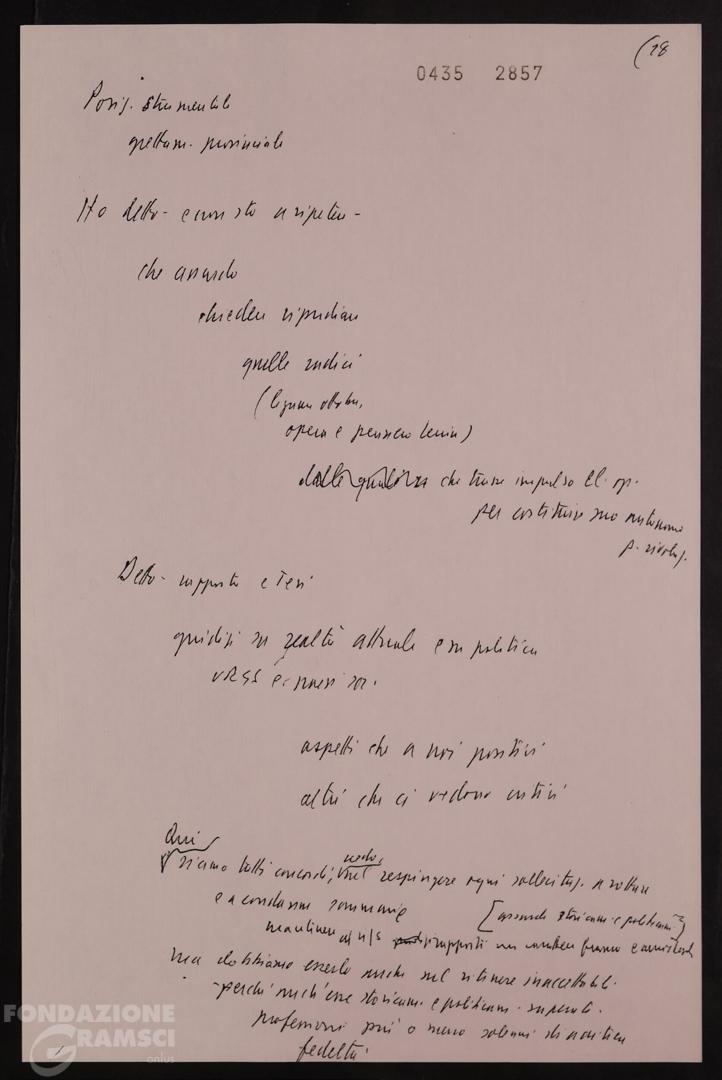 (28
0435 2857
Posiz. strumentale
grettam. provinciale
Ho detto - e non sto a ripetere -
che assurdo
chiedere ripudiare
quelle radici
(legame ottobre,
opera e pensiero Lenin)
che trasse impulso cl. op.
per costituire suo autonomo
p. rivoluz.
Detto - rapporto e Tesi
giudizi su realtà attuale e su politica
URSS e paesi soc.
aspetti che a noi positivi
altri che ci vedono critici
Qui
siamo tutti concordi, credo, nel respingere ogni sollecitaz. a rotture
e a condanne sommarie [assurde storicam. e politicam.]
mantenere rapporti un carattere franco e amichevole
ma dobbiamo esserlo anche nel ritenere inaccettabili
- perché anch'esse storicam. e politicam. superate -
professioni più o meno solenni di acritica
fedeltà.
FONDAZIONE
GRAMSCI
onlus